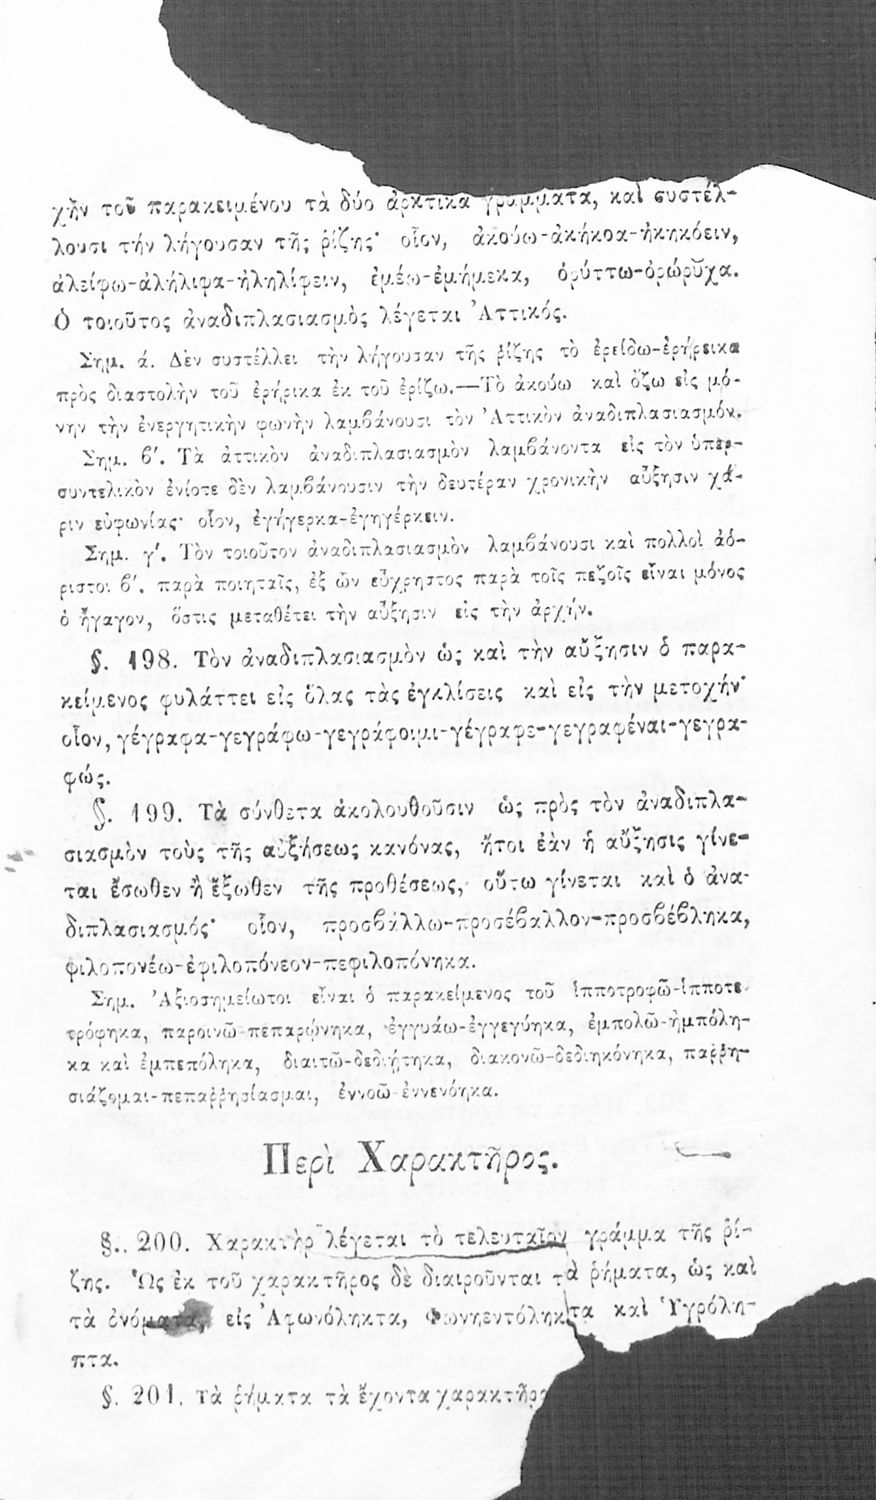 χὴν τοῦ παρακειμένου τὰ δύο ἀρκτικα γράμματα, καὶ συστέλ-
λουσι τήν λήγουσαν τῆς ῥίζης· οἷον, ἀκούω-ἀκήκοα-ἠκηκόειν,
ἀλείφω-ἀλήλιφα-ἠληλίφειν, ἐμέω-ἐμήμεκα, ὀρύττω-ὀρώρῦχα.
Ὁ τοιοῦτος ἀναδιπλασιασμὸς λέγεται Ἀττικός.
Σημ. ά. Δὲν συστέλλει τὴν λήγουσαν τῆς ῥίζης τὸ ἐρείδω-ἐρήρεικα
πρὸς διαστολὴν τοῦ ἐρήρικα ἐκ τοῦ ἐρίζω.—Τὸ ἀκούω καὶ ὄζω εἰς μό-
νην τὴν ἐνεργητικὴν φωνὴν λαμβάνουσι τὸν Ἀττικὸν ἀναδιπλασιασμόν.
Σημ. β′. Τὰ ἀττικὸν ἀναδιπλασιασμὸν λαμβάνοντα εἰς τὸν ὑπερ-
συντελικὸν ἐνίοτε δὲν λαμβάνουσιν τὴν δευτέραν χρονικὴν αὔξησιν χά-
ριν εὐφωνίας· οἷον, ἐγήγερκα-ἐγηγέρκειν.
Σημ. γ′. Τὸν τοιοῦτον ἀναδιπλασιασμὸν λαμβάνουσι καὶ πολλοὶ ἀό-
ριστοι β′. παρὰ ποιηταῖς, ἐξ ὧν εὔχρηστος παρὰ τοῖς πεζοῖς εἶναι μόνος
ὁ ἤγαγον, ὅστις μεταθέτει τὴν αὔξησιν εἰς τὴν ἀρχήν.
§. 198. Τὸν ἀναδιπλασιασμὸν ὡς καὶ τὴν αὔξησιν ὁ παρα-
κείμενος φυλάττει εἰς ὅλας τὰς ἐγκλίσεις καὶ εἰς τὴν μετοχήν·
οἷον, γέγραφα-γεγράφω-γεγράφοιμι-γέγραφε-γεγραφέναι-γεγρα-
φώς.
§. 199. Τὰ σύνθετα ἀκολουθοῦσιν ὡς πρὸς τὸν ἀναδιπλα-
σιασμὸν τοὺς τῆς αὐξήσεως κανόνας, ἤτοι ἐὰν ἡ αὔξησις γίνε-
ται ἔσωθεν ἢ ἔξωθεν τῆς προθέσεως, οὕτω γίνεται καὶ ὁ ἀνα-
διπλασιασμός· οἷον, προσβάλλω-προσέβαλλον-προσβέβληκα,
φιλοπονέω-ἐφιλοπόνεον-πεφιλοπόνηκα.
Σημ. Ἀξιοσημείωτοι εἶναι ὁ παρακείμενος τοῦ ἱπποτροφῶ-ἱπποτε-
τρόφηκα, παροινῶ-πεπαρῴνηκα, ἐγγυάω-ἐγγεγύηκα, ἐμπολῶ-ἠμπόλη-
κα καὶ ἐμπεπόληκα, διαιτῶ-δεδιῄτηκα, διακονῶ-δεδιηκόνηκα, παῤῥη-
σιάζομαι-πεπαῤῥησίασμαι, ἐννοῶ-ἐννενόηκα.
Περὶ Χαρακτῆρος.
§. 200. Χαρακτὴρ λέγεται τὸ τελευταῖον γράμμα τῆς ῥί-
ζης. Ὡς ἐκ τοῦ χαρακτῆρος δὲ διαιροῦνται τὰ ῥήματα, ὡς καὶ
τὰ ὀνόματα, εἰς Ἀφωνόληκτα, Φωνηεντόληκτα καὶ Ὑγρόλη-
πτα.
§. 201. Τὰ ῥήματα τὰ ἔχοντα χαρακτῆρα